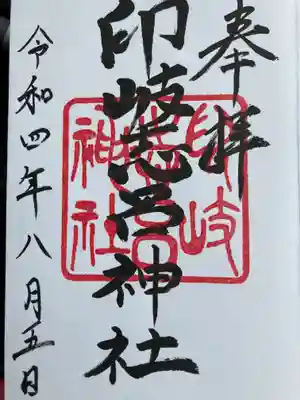 奉拝
印岐志呂神社
印岐志呂神社
令和四年八月五日